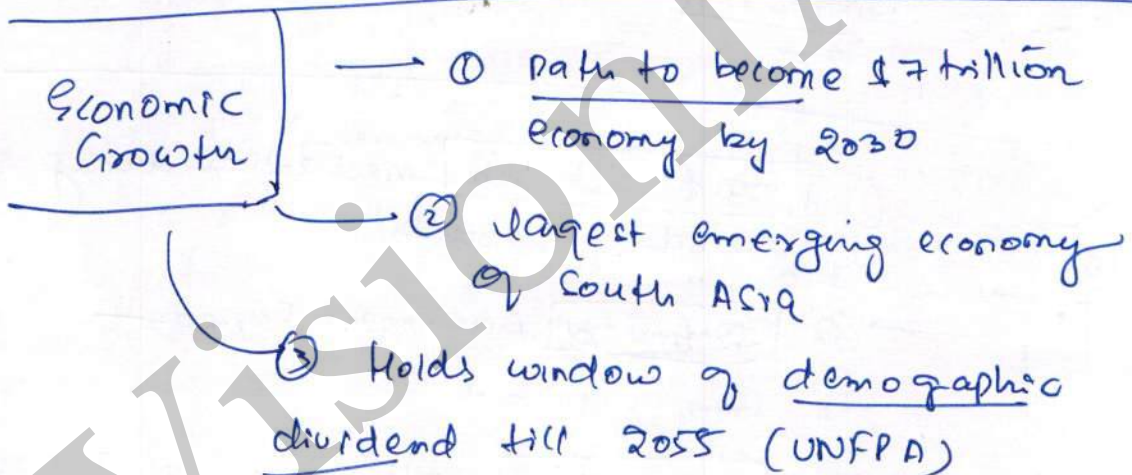 Economic
Growth
① Path to become $7 trillion
economy by 2030
② largest emerging economy
of South Asia
③ Holds window of demographic
dividend till 2055 (UNFPA)
Vision